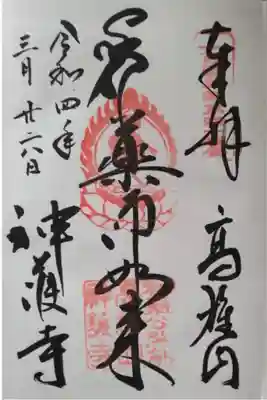 奉拝
高雄山
薬师如来
令和四年
三月廿六日
神護寺